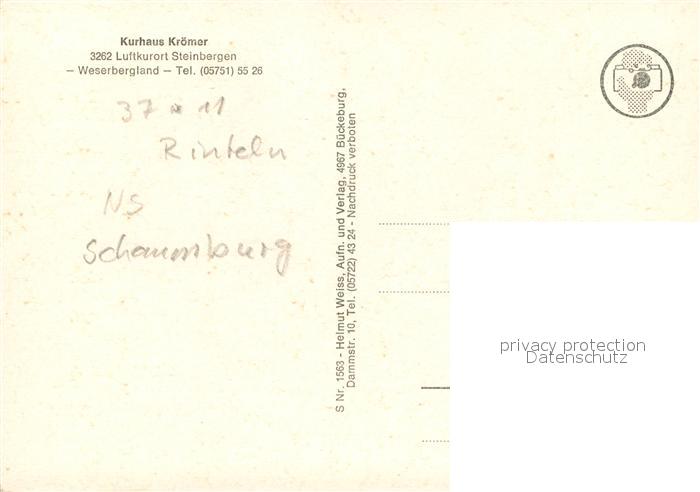 Kurhaus Krömer
3262 Luftkurort Steinbergen
— Weserbergland — Tel. (05751) 55 26
37 * 11
Rinteln
NS
Schaumburg
S Nr. 1563 - Helmut Weiss, Aufn. und Verlag, 4967 Bückeburg,
Dammstr. 10, Tel. (05722) 43 24 - Nachdruck verboten
privacy protection
Datenschutz